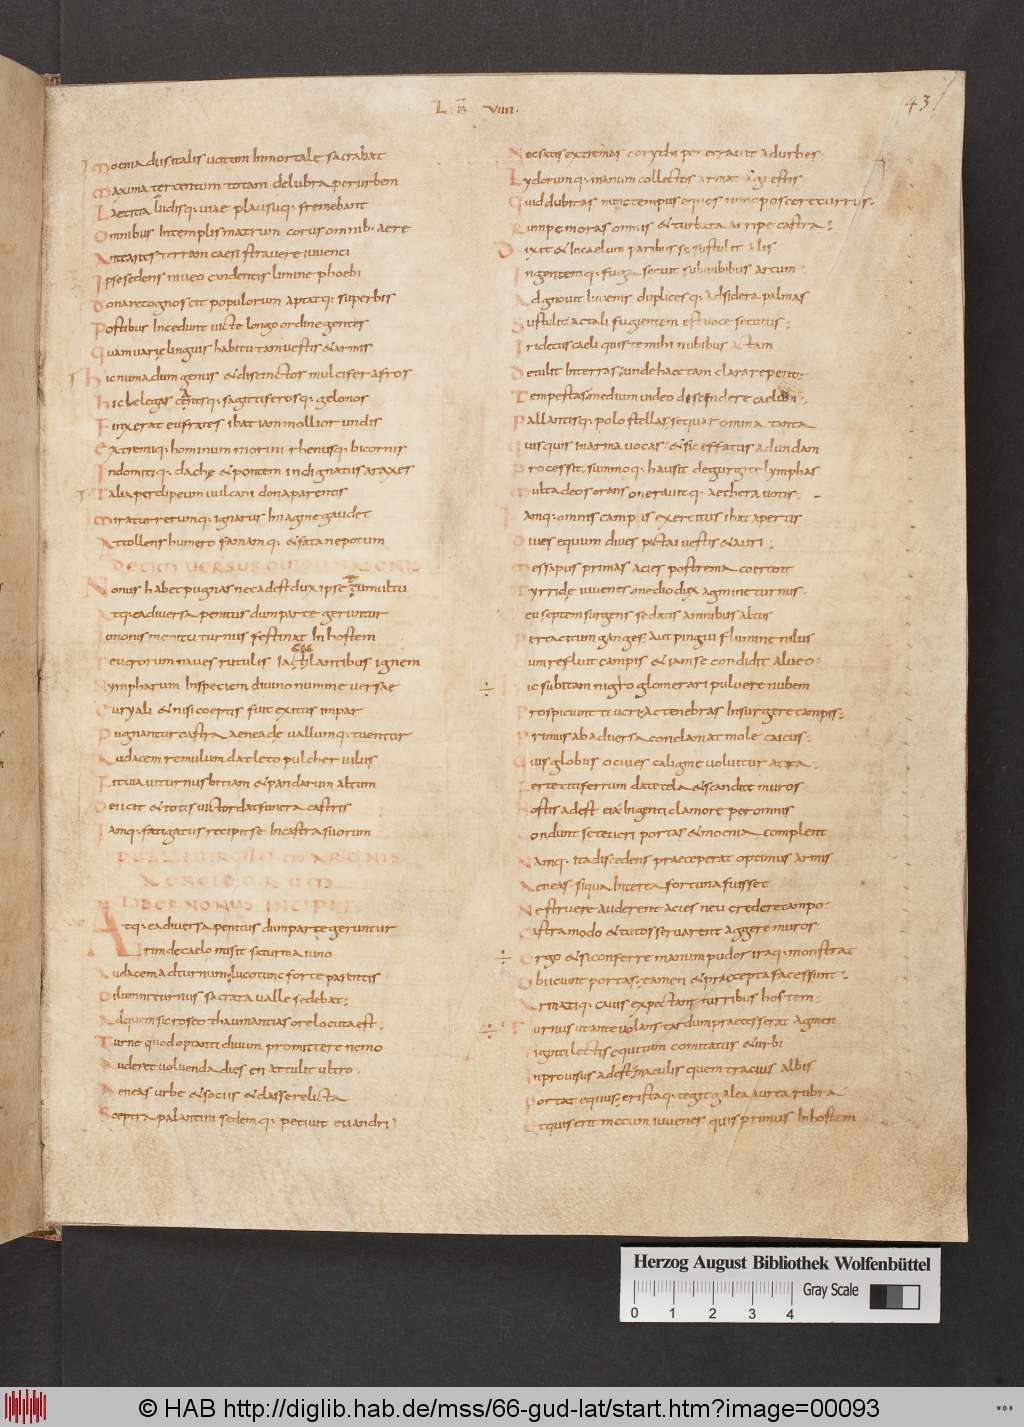 L IB VIIII.
43
Moenia diis italis uotum Inmortale sacrabat
Maxima tercentum totam delubra per urbem
Laetitia Ludisq; uiae plausuq; fremebant
Omnibus Intemplis matrum corus omnib; arae
Ante aras terram caesi strauere iuuenci
Ipse sedens niueo candentis limine phoebi
Dona recognoscit populorum aptatq; superbis
Postibus Incedunt uicte longo ordine gentes
Quam uarię linguis habitu tam uestis & armis
hic numadum genus & discinctos mulcifer afros
hic lelegas carasq; sagittiferosq; gelonos
Finxerat eufrates ibat iam mollior undis
Extremiq; hominum morini rhenusq; bicornis
Indomitiq; dachę & pontem indignatus araxes
Talia per clipeum uulcani dona parentis
Miratur rerumq; ignarus Imagine gaudet
Attollens humero famamq; & fata nepotum
Nonus habet pugnas nec adest dux ipse tumultu
Atq; ea diuersa penitus dum parte geruntur
Iunonis monitu turnus festinat In hostem
Teucrorum naues rutulis Iaculantibus ignem
Nympharum Inspeciem diuino numine uersae
Euryali & nisi coeptis fuit exitus impar
Pugnantur castra aeneadę uallumq; tuentur
Audacem remulum dat leto pulcher iulus
Licia uit turnus bitian & pandarum altum
Deiicit & totis uictor dat funera castris
Iamq; fatigatus recipit se Incastra suorum
PUBLII UIRGILII MARONIS
AENEIDORUM
LIBER NONUS INCIPIT
Atq; ea diuersa penitus dum parte geruntur
Irim de caelo misit saturnia iuno
Audacem ad turnum luco tunc forte parentis
Pilumni turnus sacrata ualle sedebat;
Ad quem sic roseo thaumantias ore locuta est;
Turne quod optanti diuum promittere nemo
Auderet uoluenda dies en attulit ultro.
Aeneas urbe & sociis & classe relicta
Sceptra palantini sedemq; petiuit euandri
Nec satis extremas corythi penetrauit ad urbes
Lydorumq; manum collectos armat agrestis
Quid dubitas nunc tempus equos nunc poscere currus.
Rumpe moras omnis & turbata arripe castra;
Dixit & Incaelum paribus se sustulit alis
Ingentemq; fuga secuit sub nubibus arcum
Adgnouit Iuuenis duplicesq; ad sidera palmas
Sustulit ac tali fugientem est uoce secutus;
Iri decus caeli quis te mihi nubibus actam
Detulit Interras; unde haec tam clara repente.
Tempestas; medium uideo discendere caelum
Pallantisq; polo stellas; sequar omina tanta
Quisquis in arma uocas & sic effatus ad undam
Processit; summoq; hausit de gurgite lymphas
Multa deos orans onerauitq; aethera uotis;
Iamq; omnis campis exercitus ibat apertis
Diues equum diues pictai uestis & auri;
Messapus primas acies postrema coercent
Tyrride iuuenes medio dux agmine turnus.
Ceu septem surgens sedatis amnibus altus
Per tacitum ganges. Aut pingui flumine nilus
Cum refluit campis & iam se condidit alueo.
Hic subitam nigro glomerari puluere nubem
Prospiciunt teucri; ac tenebras Insurgere campis;
Primus ab aduersa conclamat mole caicus;
Quis globus o ciues caligine uoluitur atra.
Ferte citi ferrum date tela & scandite muros
hostis adest eia Ingenti clamore per omnis
Condunt se teucri portas & moenia complent
Namq; ita discedens praeceperat optimus armis
Aeneas. siqua Interea fortuna fuisset
Ne struere auderent acies neu credere campo.
Castra modo & tutos seruarent aggere muros
Ergo & si conferre manum pudor iraq; monstrat
Obiiciunt portas; tamen & praecepta facessunt;
Armatiq; cauis expectant turribus hostem;
Turnus ut ante uolans tardum praecesserat agmen
Uiginti lectis equitum comitatus & urbi
Inprouisus adest; maculis quem tracius albis
Portat equus; cristaq; tegit galea aurea rubra
Ecquis erit mecum iuuenes quis primus In hostem
Herzog August Bibliothek Wolfenbüttel
Gray Scale
0 1 2 3 4
© HAB http://diglib.hab.de/mss/66-gud-lat/start.htm?image=00093